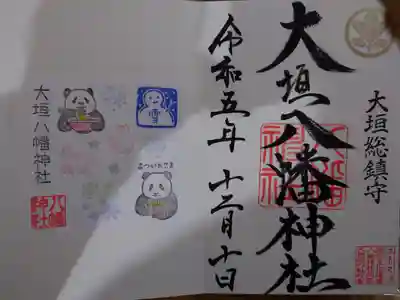 大垣総鎮守
大垣八幡神社
令和五年 十二月十日
雪
大垣八幡神社
八幡
神社